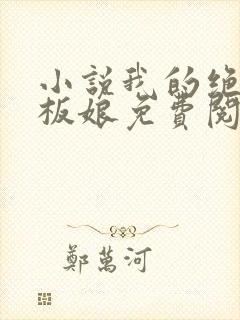 小説我的绝
板娘免費閱
鄭萬河